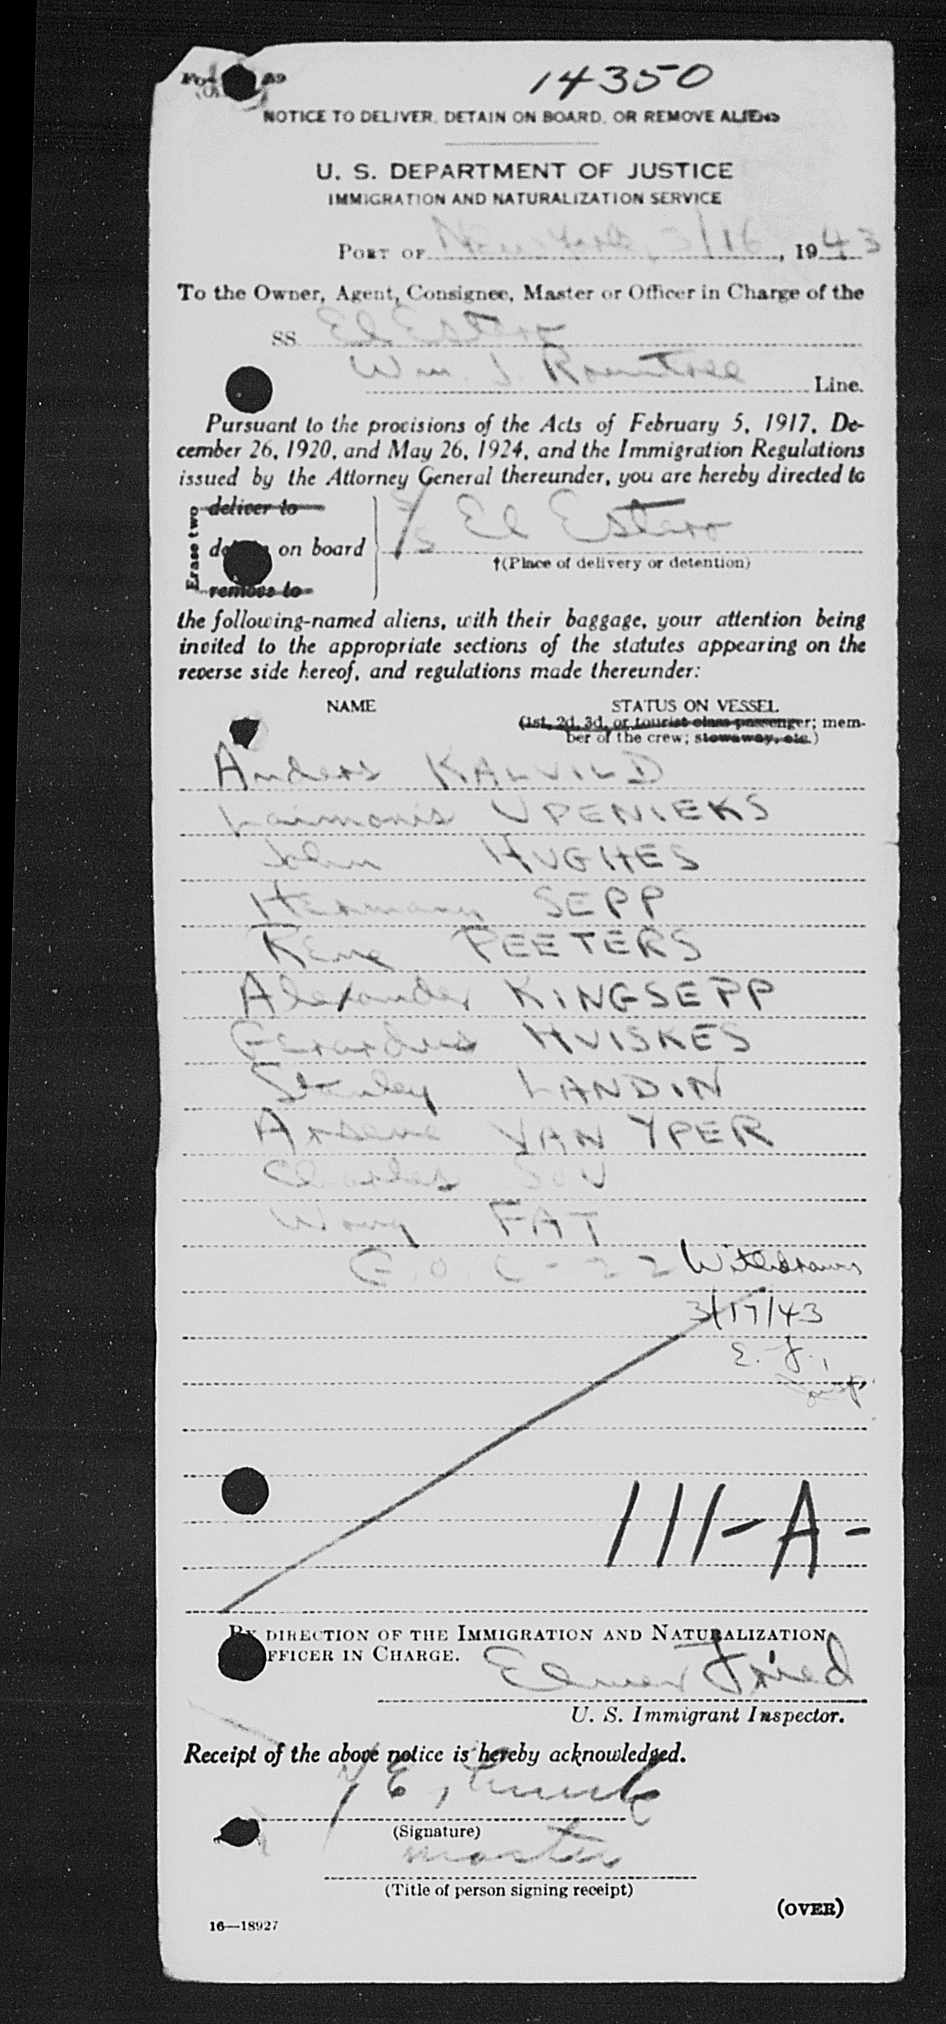 14350
NOTICE TO DELIVER, DETAIN ON BOARD, OR REMOVE ALIENS
U. S. DEPARTMENT OF JUSTICE
IMMIGRATION AND NATURALIZATION SERVICE
PORT OF New York, 3/16, 1943
To the Owner, Agent, Consignee, Master or Officer in Charge of the
SS El Estero
Wm. J. Rountree Line.
Pursuant to the provisions of the Acts of February 5, 1917, De-
cember 26, 1920, and May 26, 1924, and the Immigration Regulations
issued by the Attorney General thereunder, you are hereby directed to
Erase two
deliver to
on board S/S El Estero
†(Place of delivery or detention)
remove to
the following-named aliens, with their baggage, your attention being
invited to the appropriate sections of the statutes appearing on the
reverse side hereof, and regulations made thereunder:
NAME STATUS ON VESSEL
(1st, 2d, 3d, or tourist class passenger; mem-
ber of the crew; stowaway, etc.)
Anders KALVILD
Laimonis UPENIEKS
John HUGHES
Hermann SEPP
Rene PEETERS
Alexander KINGSEPP
Gerardus HUISKES
Stanley LANDIN
Arsene VAN YPER
Charles SOU
Wong FAT
G.O. C-22 Withdrawn
3/17/43
E. F.,
111-A-
BY DIRECTION OF THE IMMIGRATION AND NATURALIZATION
OFFICER IN CHARGE.
Elmer Fried
U. S. Immigrant Inspector.
Receipt of the above notice is hereby acknowledged.
(Signature)
master
(Title of person signing receipt)
(OVER)
16—18927